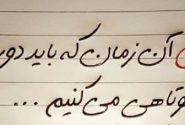 آن زمان که باید دو
وتاهی می کنیم ...